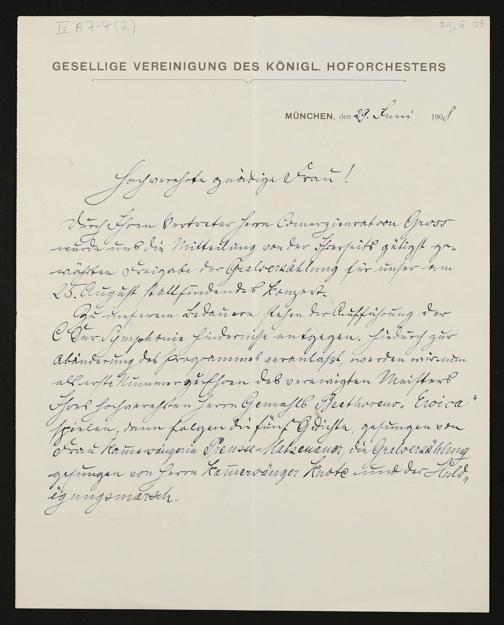 IV A 7-4 (2)
29. 6. 08
GESELLIGE VEREINIGUNG DES KÖNIGL. HOFORCHESTERS
MÜNCHEN, den 29. Juni 1908
Hochverehrte gnädige Frau!
Durch Ihren Vertreter Herrn Comerzienrat von Gross
wurde uns die Mitteilung von der Ihrerseits gütigst ge-
währten Freigabe der Gralserzählung für unser am
28. August stattfindendes Konzert.
Zu unserem Bedauern stehen der Aufführung der
C Dur Symphonie Hindernisse entgegen. Hiedurch zur
Abänderung des Programmes veranlaßt, werden wir nun
als erste Nummer zu Ehren des verewigten Meisters
Ihres hochverehrten Herrn Gemahls Beethovens „Eroica"
spielen, dann folgen die fünf Gedichte, gesungen von
Frau Kammersängerin Preusse-Matzenauer, die Gralserzählung
gesungen von Herrn Kammersänger Knote und der Huld„
igungsmarsch.